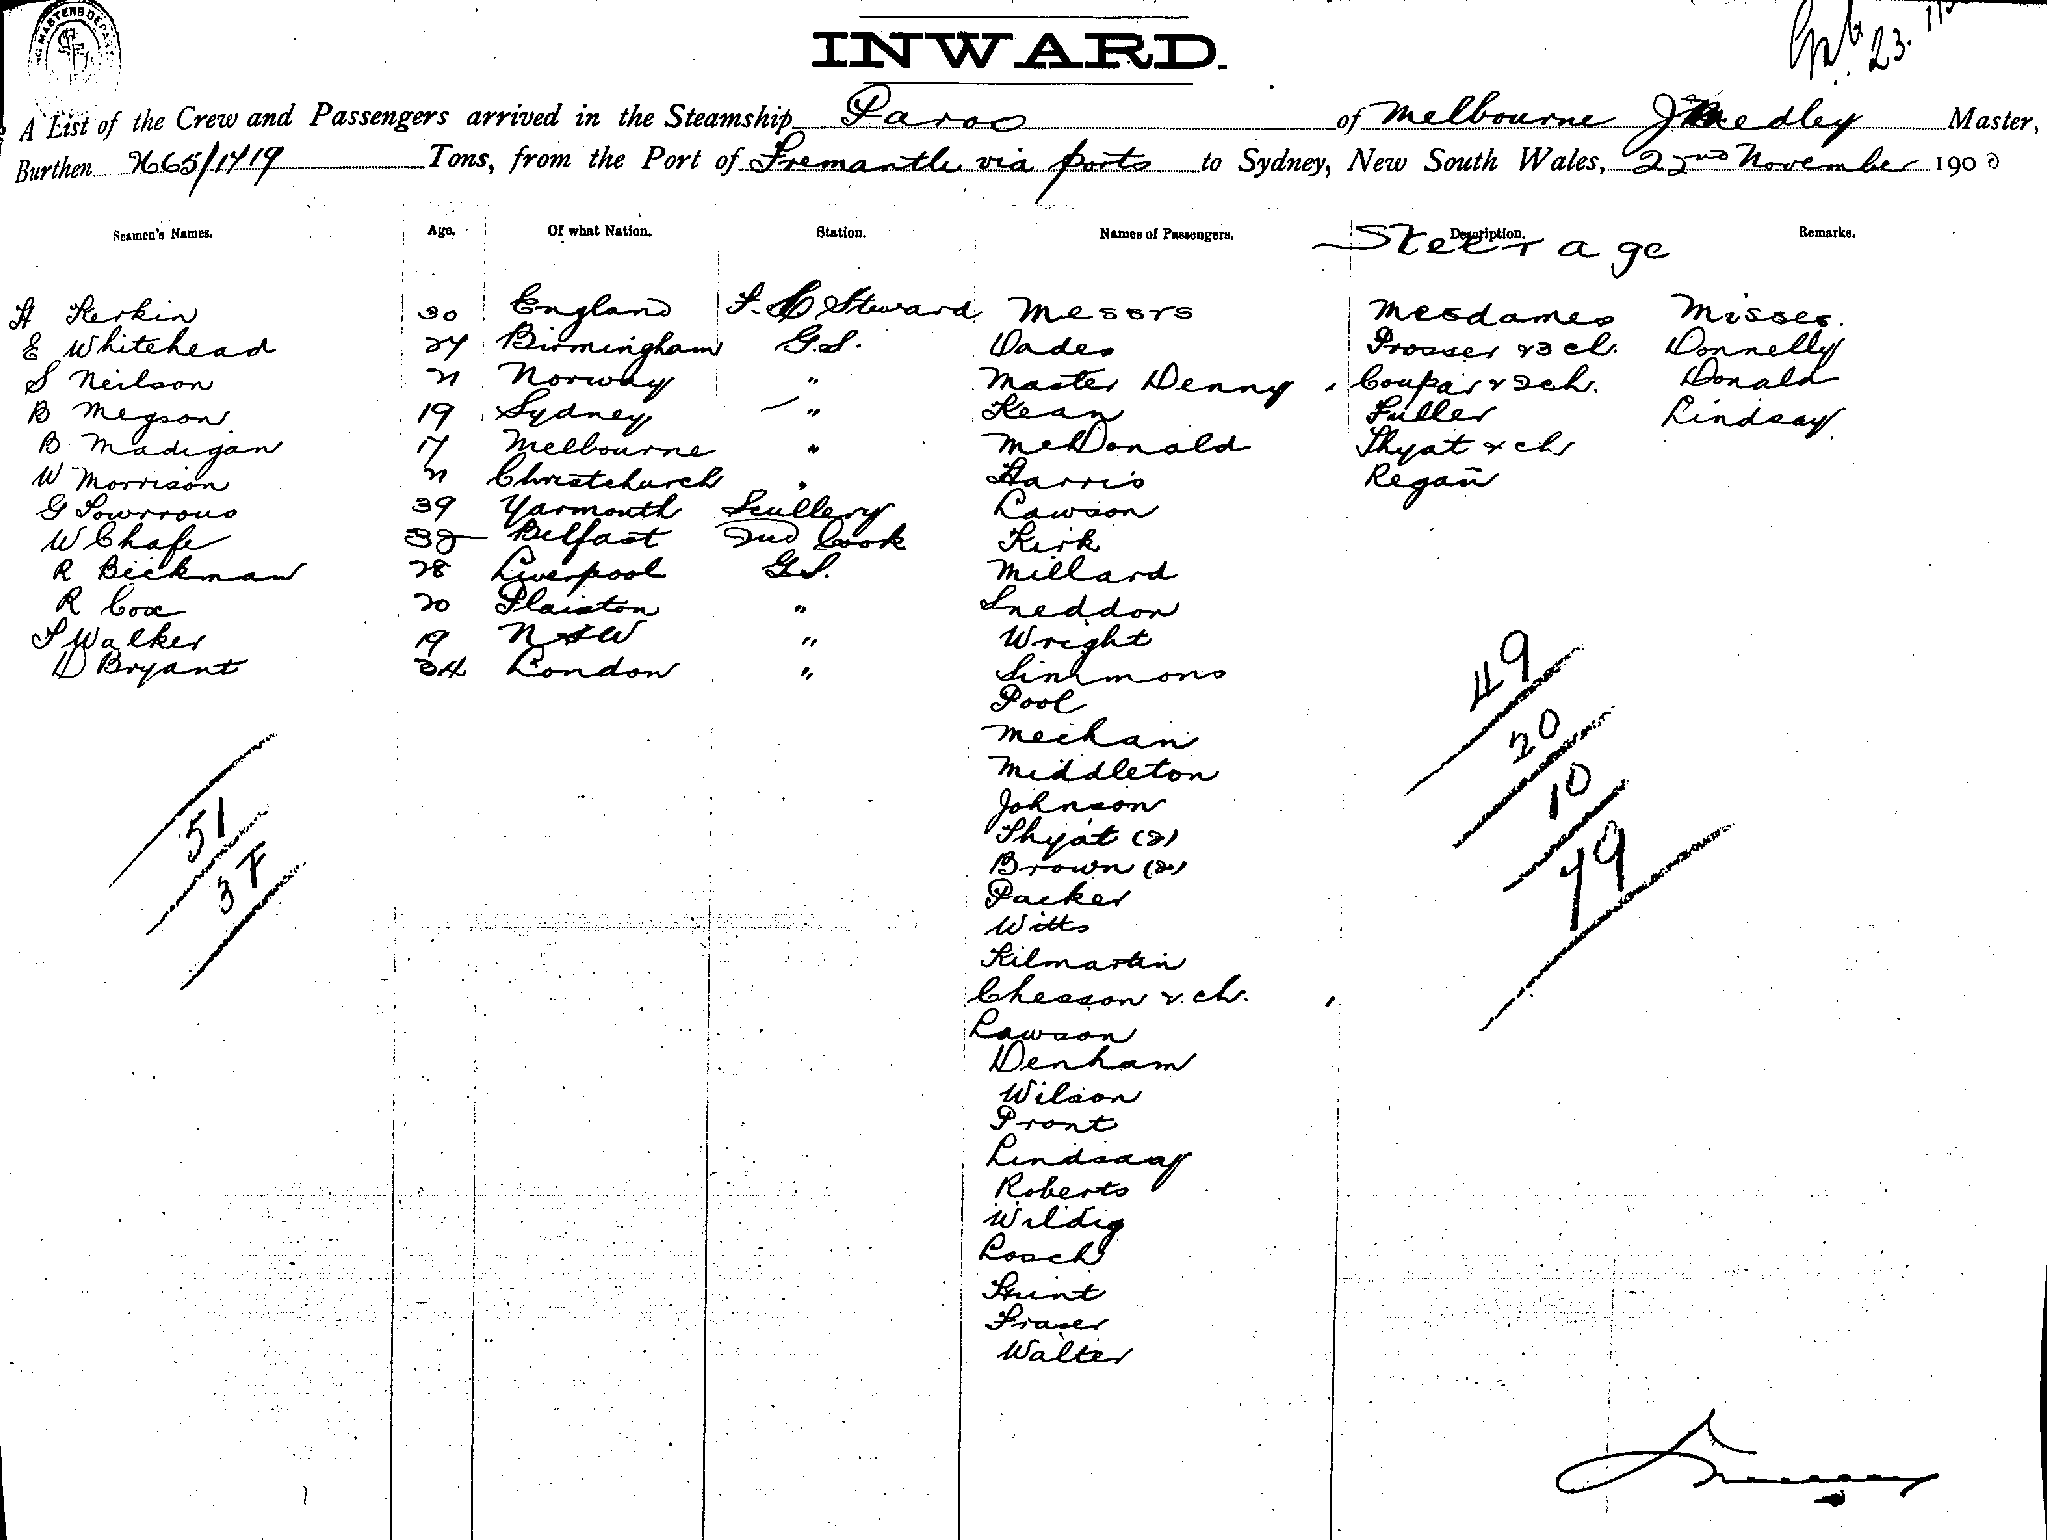 INWARD.
A List of the Crew and Passengers arrived in the Steamship Paroo of Melbourne J Medley Master,
Burthen 2665/1719 Tons, from the Port of Fremantle via ports to Sydney, New South Wales, 22nd November 1900
Seamen's Names. Age. Of what Nation. Station. Names of Passengers. Description. Remarks.
Steerage
H Kerkin 30 England F. C Steward Messrs Mesdames Misses.
E Whitehead 27 Birmingham G.S. Dades Prosser & 3 ch. Donnelly
S Neilson 21 Norway " Master Denny Coupar & 2 ch. Donald
B Megson 19 Sydney " Kean Fuller Lindsay
B Madigan 17 Melbourne " McDonald Thyat & ch
W Morrison 21 Christchurch " Harris Regan
G 39 Yarmouth Scullery Lawson
W Chafe 32 Belfast 2nd Cook Kirk
R Beckman 28 Liverpool G.S. Millard
R Cox 20 Plaiston " Sneddon
F Walker 19 NSW " Wright
D Bryant 34 London " Simmons
Pool
Meehan
Middleton
Johnson
Thyat (2)
Brown (2)
Packer
Witts
Kilmartin
Chesson & ch.
Lawson
Denham
Wilson
Pront
Lindsaay
Roberts
Wildig
Losch
Hunt
Fraser
Walter
49
20
10
79
51
37